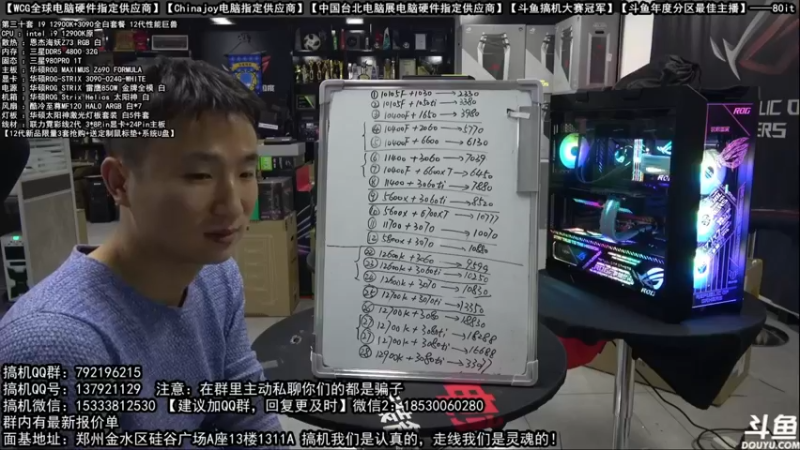 【WCG全球电脑硬件指定供应商】【Chinajoy电脑指定供应商】【中国台北电脑展电脑硬件指定供应商】【斗鱼搞机大赛冠军】【斗鱼年度分区最佳主播】——80it
第三十套 I9 12900K+3090全白套餐 12代性能巨兽
CPU：intel i9 12900K原
散热：恩杰海妖Z73 RGB 白
内存：三星DDR5 4800 32G
固态：三星980PRO 1T
主板：华硕ROG MAXIMUS Z690 FORMULA
显卡：华硕ROG-STRIX 3090-O24G-WHITE
电源：华硕ROG-STRIX 雷鹰850W 金牌全模 白
机箱：华硕ROG Strix Helios 太阳神 白
风扇：酷冷至尊MF120 HALO ARGB 白*7
灯板：华硕太阳神激光灯板套装 白5件套
线材：联力霓彩线2代 3*8Pin显卡+24Pin主板
【12代新品限量3套抢购+送定制鼠标垫+系统U盘】
① 10105F+1030→2330
② 10105F+1050ti→3380
③ 10400F+1650→3980
④ 10400F+2060→5770
⑤ 10400F+6600→6130
⑥ 11400+3060→7039
⑦ 10400F+6600XT→6450
⑧ 11400+3060ti→7880
⑨ 5600X+3060ti→8520
⑩ 5600X+6700XT→10777
⑪ 11700+3070→10070
⑫ 5800X+3070→10880
12600K+3060→9399
12600K+3060ti→10250
12600K+3070→10830
12700K+3070ti→13350
12700K+3080→18830
12700K+3080ti→18088
12700K+3080ti→16688
㉘ 12900K+3080ti→33977
ROG
ROG
搞机QQ群：792196215
搞机QQ号：137921129 注意：在群里主动私聊你们的都是骗子
搞机微信：15333812530 【建议加QQ群，回复更及时】微信2：18530060280
群内有最新报价单
面基地址：郑州金水区硅谷广场A座13楼1311A 搞机我们是认真的，走线我们是灵魂的！
斗鱼
DOUYU.COM